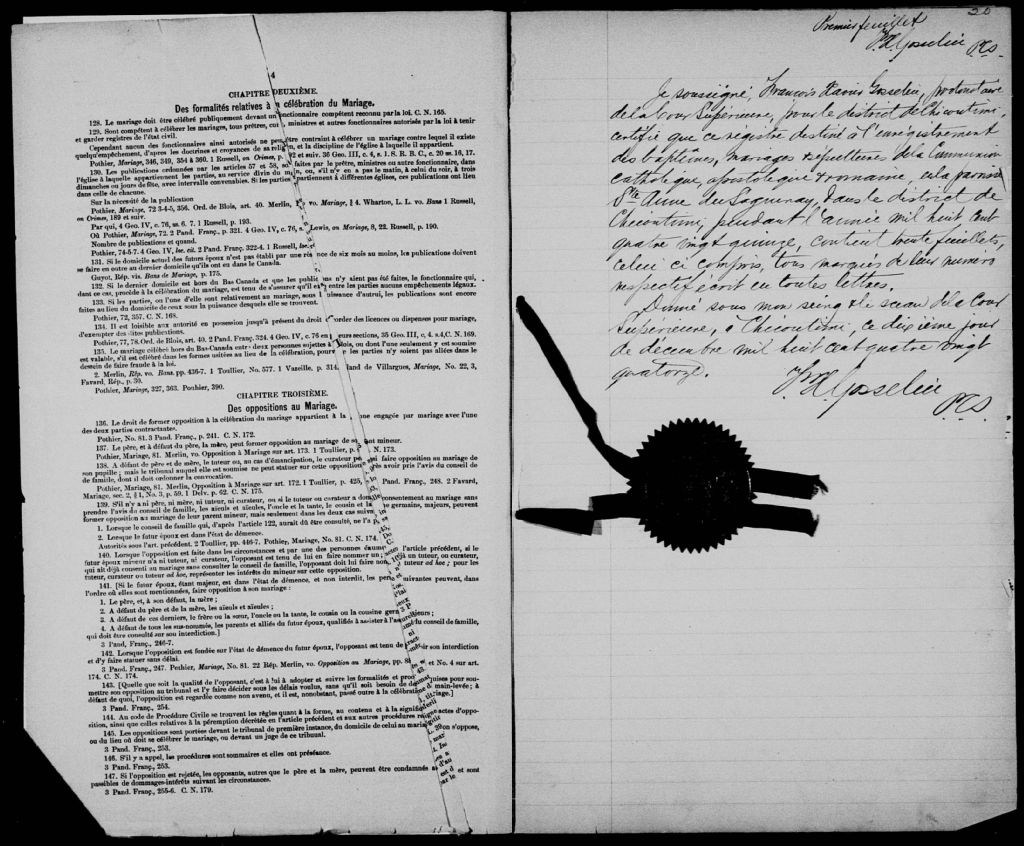 4
CHAPITRE DEUXIÈME.
Des formalités relatives à célébration du Mariage.
128. Le mariage doit être célébré publiquement devant un fonctionnaire compétent reconnu par la loi. C. N. 165.
129. Sont compétent à célébrer les mariages, tous prêtres, cui ministres et autres fonctionnaires autorisés par la loi à tenir
et garder registres de l'état civil.
Cependant aucun des fonctionnaires ainsi autorisés ne peut être contraint à célébrer un mariage contre lequel il existe
quelqu'empêchement, d'apres les doctrines et croyances de sa religion, et la discipline de l'église à laquelle il appartient
Pothier, Mariage, 346, 349, 354 à 360. 1 Russell, on Crimes, p. 192 et suiv. 36 Geo. III, c. 4, s. 1. S. R. B. C., c. 20 ss. 16, 17.
130. Les publications ordonnées par les articles 57 et 58, so faites par le prêtre, ministre ou autre fonctionnaire, dans
l'église à laquelle appartiennent les parties, au service divin du matin, ou, s'il n'y en a pas le matin, à celui du soir, à trois
dimanches ou jours de fête, avec intervalle convenables. Si les parties appartiennent à différentes églises, ces publications ont lieu
dans celle de chacune.
Sur la nécessité de la publication
Pothier, Mariage, 72 3-4-5, 356. Ord. de Blois, art. 40. Merlin, vo. Mariage, § 4. Wharton, L. L. vo. Bans 1 Russell,
on Crimes, 189 et suiv.
Par qui, 4 Geo. IV, c. 76, s. 6. 7. 1 Russell, p. 193.
Où Pothier, Mariage, 72. 2 Pand. Franç., p. 321. 4 Geo. IV, c. 76, s. Lewis, on Mariage, 8, 22. Russell, p. 190.
Nombre de publications et quand.
Pothier, 74-5-7. 4 Geo. IV, loc. cit. 2 Pand. Franç. 322-4. 1 Russell, loc.
131. Si le domicile actuel des futurs époux n'est pas établi par une résidence de six mois au moins, les publications doivent
se faire en outre au dernier domicile qu'ils ont eu dans le Canada.
Guyot, Rép. vis. Bans de Mariage, p. 175.
132. Si le dernier domicile est hors du Bas Canada et que les publications n'y aient pas été faites, le fonctionnaire qui,
dans ce cas, procède à la célébration du mariage, est tenu de s'assurer qu'il entre les parties aucuns empêchements légaux.
133. Si les parties, ou l'une d'elle sont relativement au mariage, sous puissance d'autrui, les publications sont encore
faites au lieu du domicile de ceux sous la puissance desquels elle se trouvent.
Pothier, 72, 357. C. N. 168.
134. Il est loisible aux autorité en possession jusqu'à présent du droit d'accorder des licences ou dispenses pour mariage,
d'exempter des dites publications.
Pothier, 77, 78. Ord. de Blois, art. 40. 2 Pand. Franç. 324. 4 Geo. IV, c. 76 en sections, 35 Geo. III, c. 4, s.4, C. N. 169.
135. Le mariage célébré hors du Bas-Canada entre deux personnes sujettes à lois, ou dont l'une seulement y est soumise
est valable, s'il est célébré dans les formes usitées au lieu de la célébration, pourvu les parties n'y soient pas allées dans le
dessein de faire fraude à la loi.
2. Merlin, Rép. vo. Bans. pp. 436-7. 1 Toullier, No. 577. 1 Vazeille. p. 314. land de Villargues, Mariage, No. 22, 3,
Favard, Rép., p. 30.
Pothier, Mariage, 327, 363. Pothier, 390.
CHAPITRE TROISIÈME.
Des oppositions au Mariage.
136. Le droit de former opposition à la célébration du mariage appartient à la engagée par mariage avec l'une
des deux parties contractantes.
Pothier, No. 81. 3 Pand. Franç., p. 241. C. N. 172.
137. Le père, et à défaut du père, la mère, peut former opposition au mariage de se mineur.
Pothier, Mariage, 81. Merlin, vo. Opposition au Mariage sur art. 173. 1 Toullier, p. N. 173.
138. A défaut de père et de mère, le tuteur ou, au cas d'émancipation, le curateur peut faire opposition au mariage de
son pupille; mais le tribunal auquel elle est soumise ne peut statuer sur cette opposition après avoir pris l'avis du conseil
de famille, dont il doit ordonner la convocation.
Pothier, Mariage, 81. Merlin, Opposition à Mariage sur art. 172. 1 Toullier, p. 425, Pand. Franç., 248. 2 Favard,
Mariage, sec. 2, § 1, No. 3, p. 59. 1 Delv. p. 62. C. N. 175.
139. S'il n'y a ni père, ni mère, ni tuteur, ni curateur, ou si le tuteur ou curateur a donné consentement au mariage sans
prendre l'avis du conseil de famille, les aïeuls et aïeules, l'oncle et la tante, le cousin et la germains, majeurs, peuvent
former opposition au mariage de leur parent mineur, mais seulement dans les deux cas suiv
1. Lorsque le conseil de famille qui, d'après l'article 122, aurait dû être consulté, ne l'a p
2. Lorsque le futur époux est dans l'état de démence.
Autorités sous l'art. précédent. 2 Toullier, pp. 446-7. Pothier, Mariage, No. 81. C. N. 174.
140. Lorsque l'opposition est faite dans les circonstances et par une des personnes énum l'article précédent, si le
futur époux mineur n'a ni tuteur, ni curateur, l'opposant est tenu de lui en faire nommer un; un tuteur, ou curateur,
qui ait déjà consenti au mariage sans consulter le conseil de famille, l'opposant doit lui faire nom tuteur ad hoc; pour les
tuteur, curateur ou tuteur ad hoc, représenter les intérêts du mineur sur cette opposition.
141. [Si le futur époux, étant majeur, est dans l'état de démence, et non interdit, les per suivantes peuvent, dans
l'ordre où elles sont mentionnées, faire opposition à son mariage:
1. Le père, et, à son défaut, la mère;
2. A défaut du père et de la mère, les aïeuls et aïeules;
3. A défaut de ces derniers, le frère ou la sœur, l'oncle ou la tante, le cousin ou la cousine germ
4. A défaut de tous les sus-nommés, les parents et alliés du futur époux, qualifiés à assister à l'a du conseil de famille,
qui doit être consulté sur son interdiction.]
3 Pand, Franç., 246-7.
142. Lorsque l'opposition est fondée sur l'état de démence du futur époux, l'opposant est tenu de son interdiction
et d'y faire statuer sans délai.
3 Pand. Franç., 247. Pothier, Mariage, No. 81. 22 Rép. Merlin, vo. Opposition au Mariage, pp. et No. 4 sur art.
174. C. N. 174.
143. [Quelle que soit la qualité de l'opposant, c'est à lui à adopter et suivre les formalités et pro quises pour sou-
mettre son opposition au tribunal et l'y faire décider sous les délais voulus, sans qu'il soit besoin de main-levée; à
défaut de quoi, l'opposition est regardée comme non avenue, et il est, nonobstant, passé outre à la célébration riage.]
3 Pand. Franç., 254.
144. Au code de Procédure Civile se trouvent les règles quant à la forme, au contenu et à la signific actes d'oppo-
sition, ainsi que celles relatives à la péremption décrétée en l'article précédent et aux autres procédures
145. Les oppositions sont portées devant le tribunal de première instance, du domicile de celui au mariage on s'oppose,
ou du lieu où doit se célébrer le mariage, ou devant un juge de ce tribunal.
3 Pand. Franç., 253.
146. S'il y a appel, les procédures sont sommaires et elles ont préséance.
3 Pand. Franç., 253.
147. Si l'opposition est rejetée, les opposants, autres que le père et la mère, peuvent être condamnés et sont
passibles de dommages-intérêts suivant les circonstances.
3 Pand. Franç., 255-6. C. N. 179.
20
Premier feuillet
F. X. Gosselin
P.C.S.
Je soussigné, François Xavier Gosselin, protonotaire
de la Cour Supérieure, pour le district de Chicoutimi,
certifie que ce registre destiné à l'enregistrement
des baptêmes, mariages & sépultures de la Communion
catholique, apostolique & romaine, en la paroisse
Ste Anne du Saguenay, dans le district de
Chicoutimi, pendant l'année mil huit cent
quatre vingt quinze, contient trente feuillets,
celui ci compris, tous marqués de leur numero
respectif écrit en toutes lettres.
Donné sous mon seing & le sceau de la Cour
Supérieure, à Chicoutimi, ce dixième jour
de décembre mil huit cent quatre vingt
quatorze.
F. X. Gosselin
P.C.S.